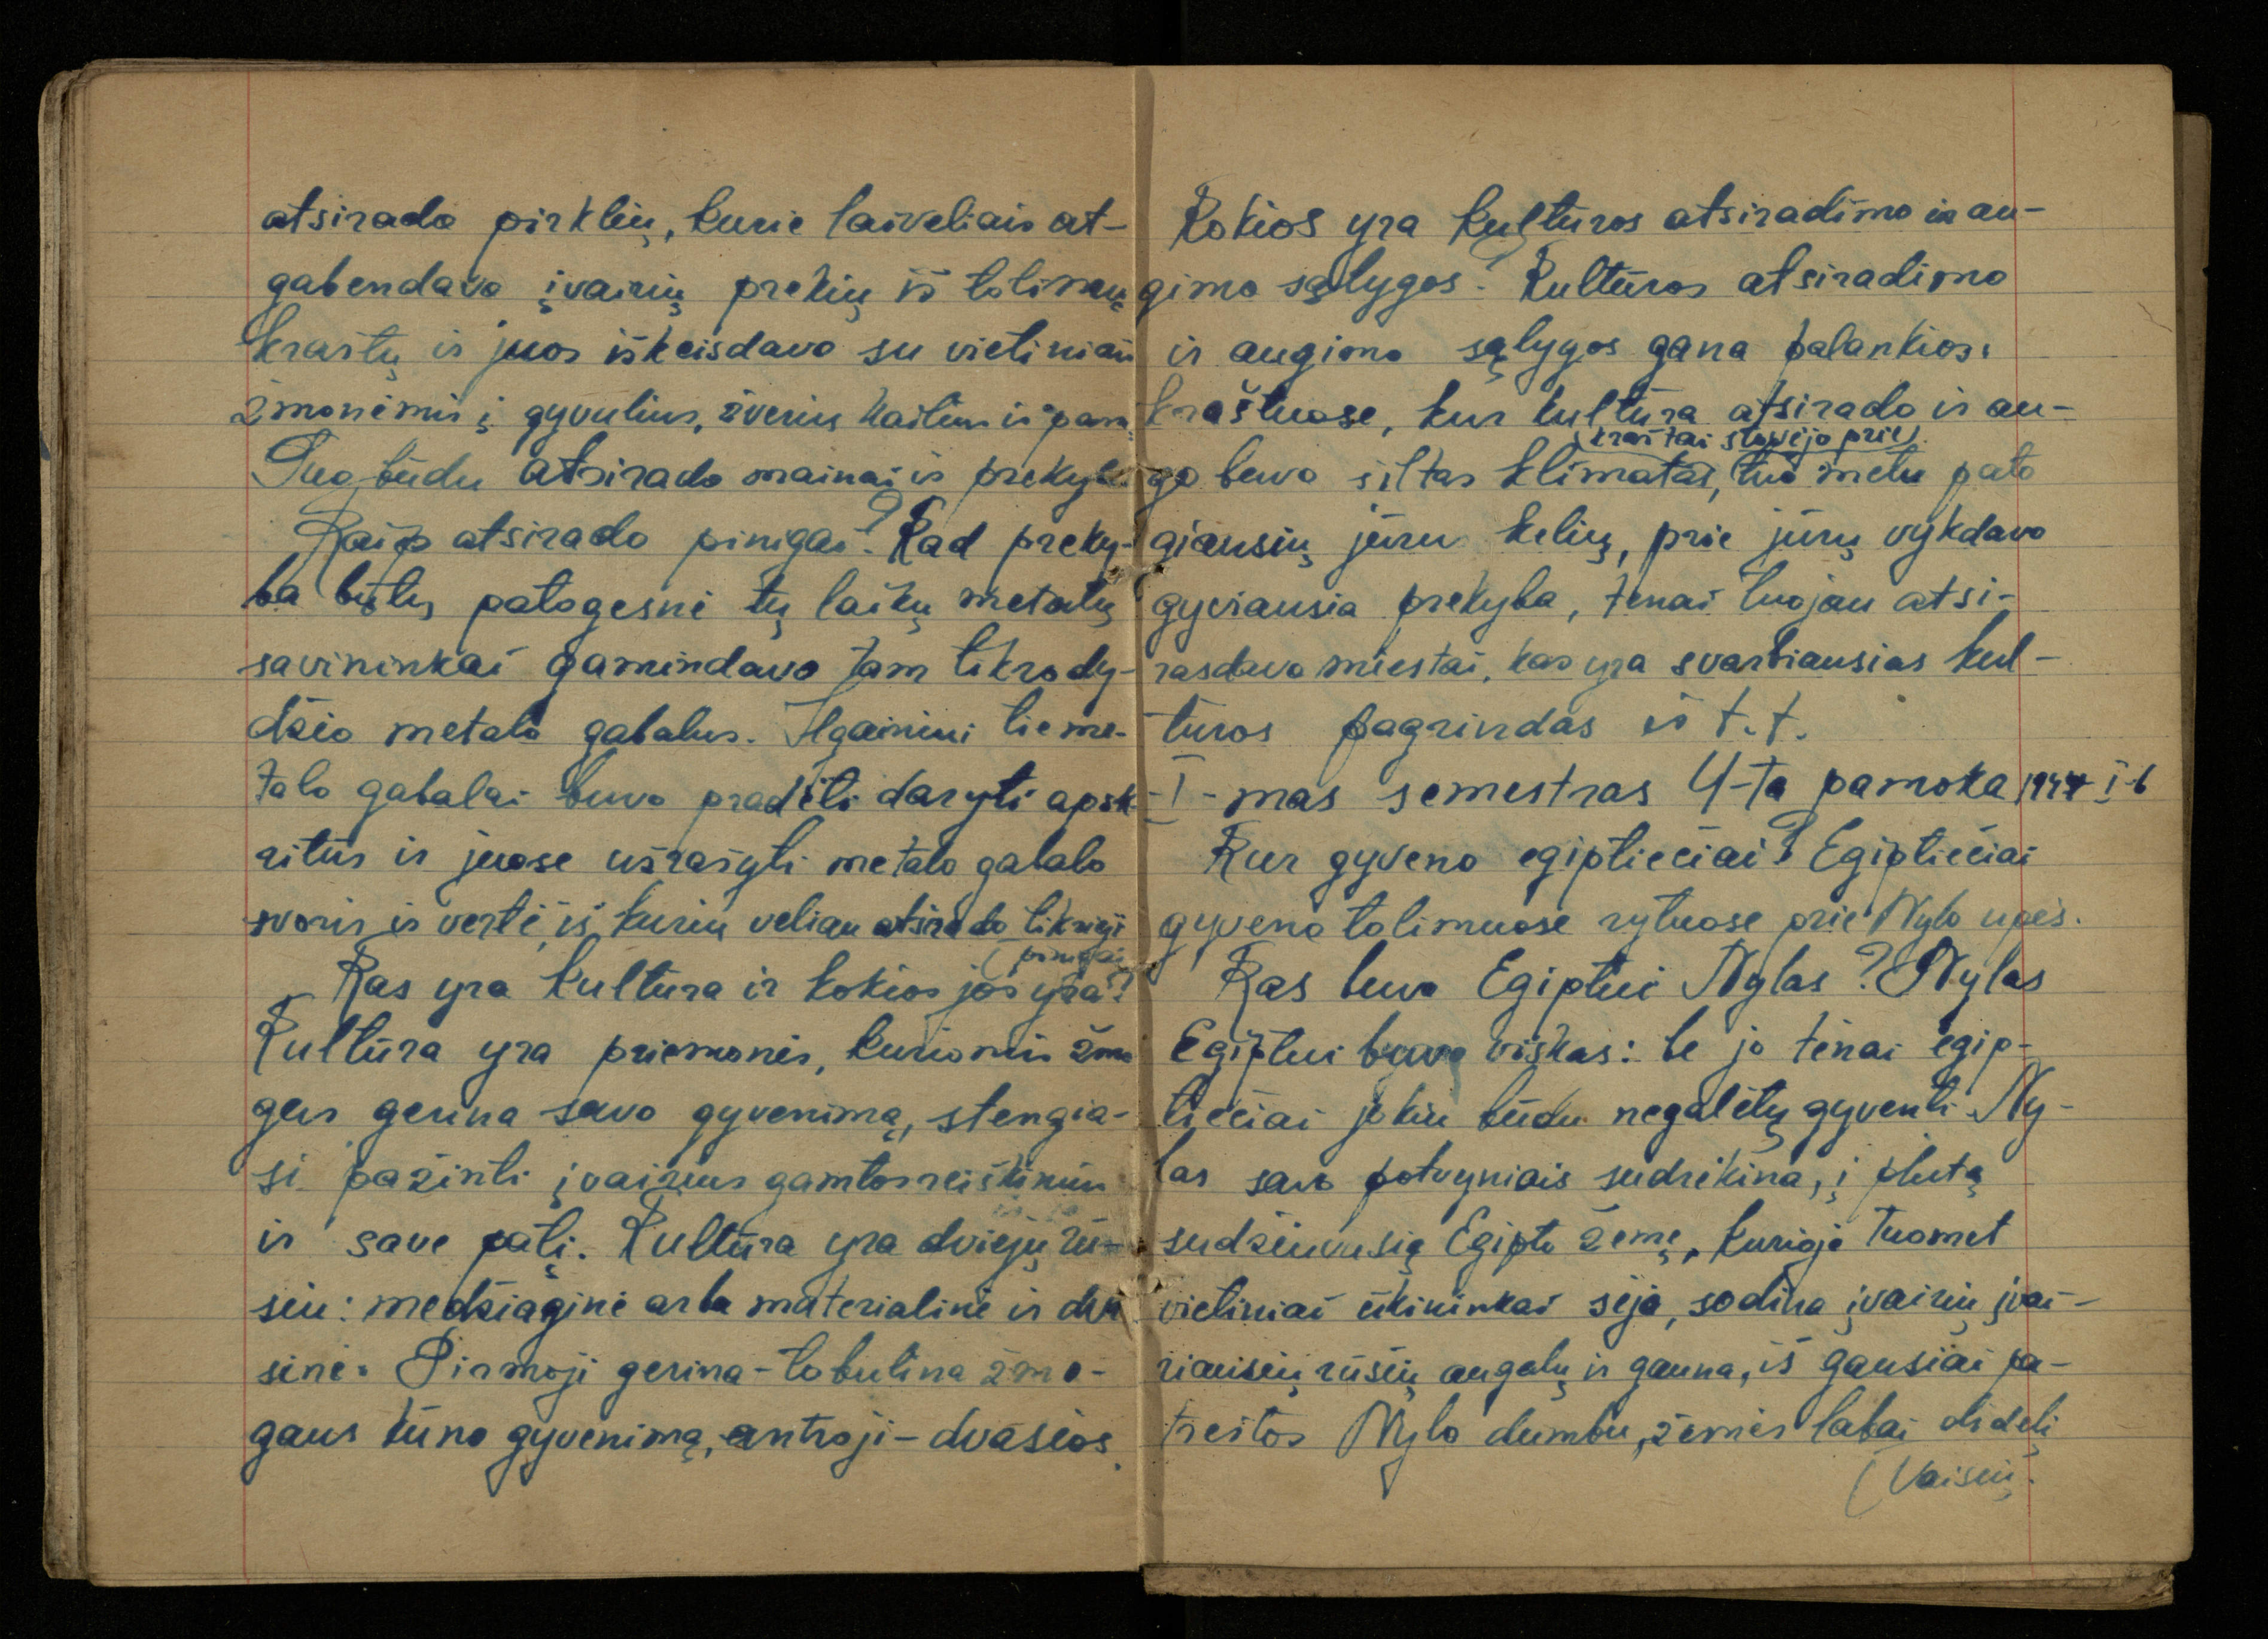 atsirado pirklių, kurie laiveliais at-
gabendavo įvairių prekių iš tolimų
kraštų ir juos iškeisdavo su vietiniais
žmonėmis į gyvulius, žverių kailius ir
Tuo būdu atsirado mainai ir prekyba
Kaip atsirado pinigai? Kad preky-
ba būtų patogesnė tų laikų metalų
savininkai gamindavo tam tikro dy-
džio metalo gabalus. Ilgainiui tie me-
talo gabalai buvo pradėti daryti apsk-
ritus ir juose užrašyti metalo gabalo
svoris ir vertė, iš kurių veliau atsirado tikrieji
(pinigai
Kas yra kultūra ir kokios jos yra?
Kultūra yra priemonės, kuriomis žmo
gus gerina savo gyvenimą, stengia-
si pažinti įvairius gamtos reiškinius
ir save patį. Kultūra yra dviejų rū-
šiu: medžiaginė arba materialinė ir dva
sinė. Pirmoji gerina-tobulina žmo-
gaus kūno gyvenimą, antroji-dvasios.
Kokios yra kultūros atsiradimo ir au-
gimo sąlygos? Kultūros atsiradimo
ir augimo sąlygos gana palankios.
kraštuose, kur kultūra atsirado ir au-
(kraštai stovėjo prie)
go buvo šiltas klimatas, tuo metu pato
giausių jūrų kelių, prie jūrų vykdavo
gyviausia prekyba, tenai tuojau atsi-
rasdavo miestai, kas yra svarbiausias kul-
tūros pagrindas ir t.t.
-I-mas semestras 4-ta pamoka 1944 I-6
Kur gyveno egiptiečiai? Egiptiečiai
gyveno tolimuose rytuose prie Nylo upės.
Kas buvo Egiptui Nylas? Nylas
Egiptui buvo viskas: be jo tenai egip-
tiečiai jokiu būdu negalėtų gyventi. Ny-
las savo potvyniais sudrėkina, į plutą
sudžiuvusią Egipto žemę, kurioje tuomet
vietiniai ūkininkai sėja, sodina įvairių įvai-
riausių rūšių augalų ir gauna, iš gausiai pa-
tręštos Nylo dumblu, žemės labai didelį
(vaisių.